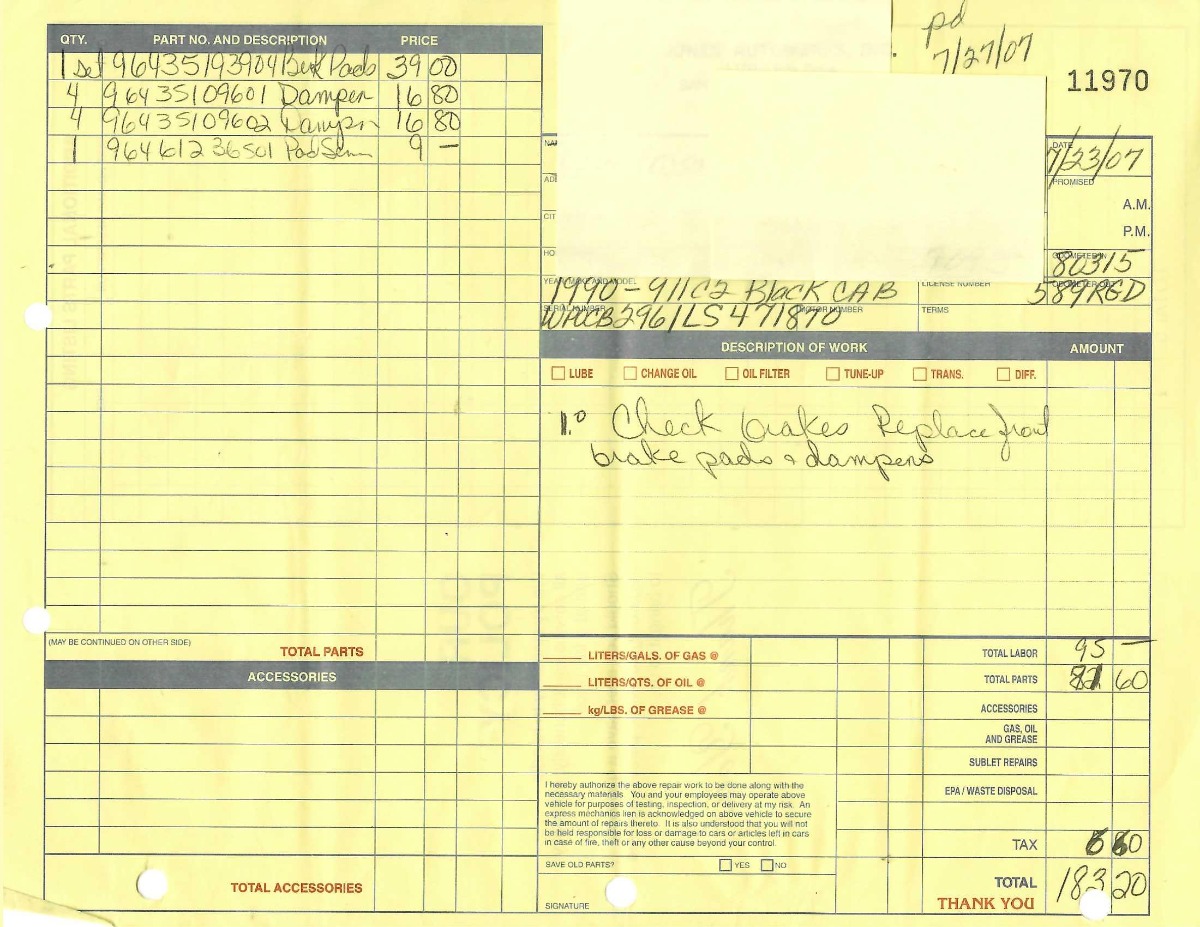 pd
7/27/07
11970
QTY. PART NO. AND DESCRIPTION PRICE
1 set 96435193904 Brk Pads 39 00
4 96435109601 Damper 16 80
4 96435109602 Damper 16 80
1 96461236501 Pad Senn 9 —
DATE
7/23/07
PROMISED
A.M.
P.M.
ODOMETER IN
80315
YEAR, MAKE AND MODEL
1990 - 911C2 Black CAB
LICENSE NUMBER
589RGD
SERIAL NUMBER
MOTOR NUMBER
TERMS
DESCRIPTION OF WORK AMOUNT
LUBE CHANGE OIL OIL FILTER TUNE-UP TRANS. DIFF.
1.0 Check brakes Replace front
brake pads & dampers
(MAY BE CONTINUED ON OTHER SIDE)
TOTAL PARTS
ACCESSORIES
TOTAL ACCESSORIES
LITERS/GALS. OF GAS @
LITERS/QTS. OF OIL @
kg/LBS. OF GREASE @
TOTAL LABOR 95 —
TOTAL PARTS 81 60
ACCESSORIES
GAS, OIL
AND GREASE
SUBLET REPAIRS
EPA / WASTE DISPOSAL
I hereby authorize the above repair work to be done along with the
necessary materials. You and your employees may operate above
vehicle for purposes of testing, inspection, or delivery at my risk. An
express mechanics lien is acknowledged on above vehicle to secure
the amount of repairs thereto. It is also understood that you will not
be held responsible for loss or damage to cars or articles left in cars
in case of fire, theft or any other cause beyond your control.
SAVE OLD PARTS? YES NO
SIGNATURE
TAX 6 60
TOTAL 183 20
THANK YOU